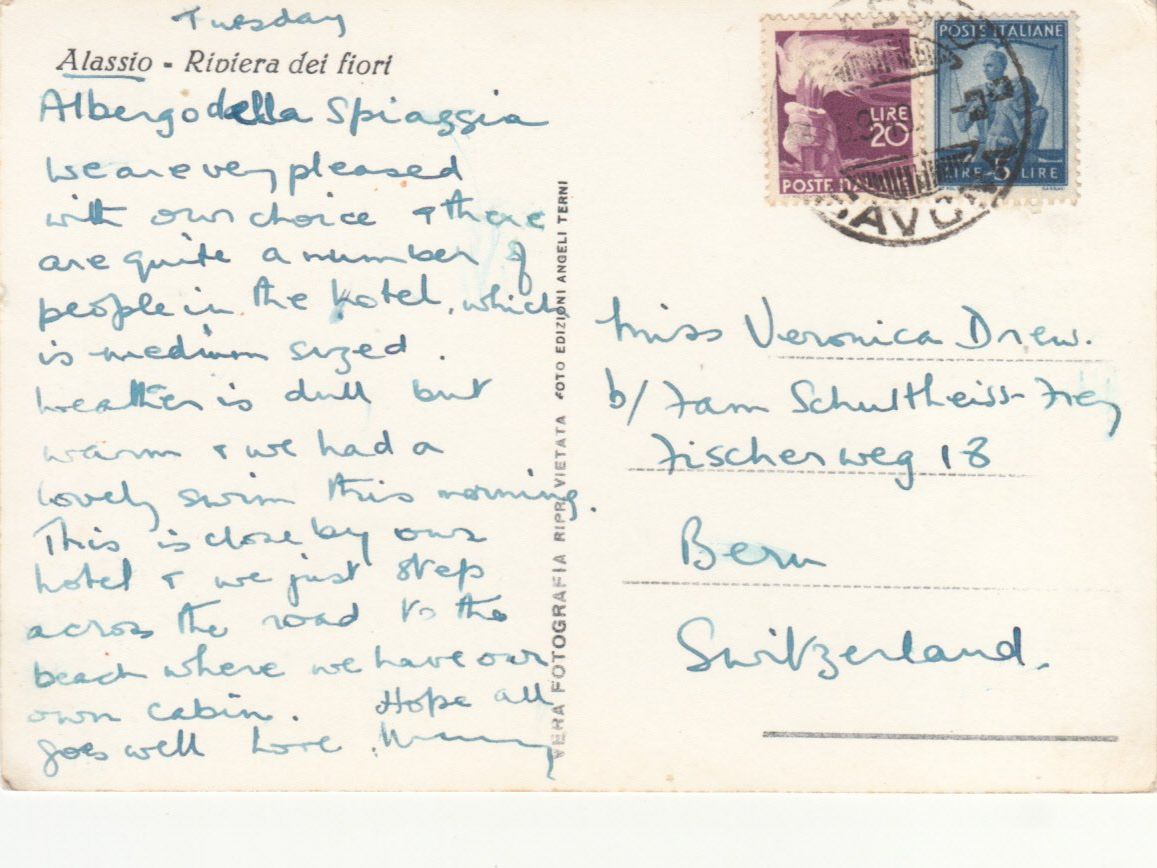 Tuesday
Alassio - Riviera dei fiori
Albergo della Spiaggia
We are very pleased
with our choice & there
are quite a number of
people in the hotel, which
is medium sized.
Weather is dull but
warm & we had a
lovely swim this morning.
This is close by our
hotel & we just step
across the road to the
beach where we have our
own cabin. Hope all
goes well love Mummy
VERA FOTOGRAFIA RIPR. VIETATA FOTO EDIZIONI ANGELI TERNI
LIRE
20
POSTE ITA
POSTE ITALIANE
LIRE 5 LIRE
SAVONA
Miss Veronica Drew.
b/ Fam Schultheiss-Frey
Fischerweg 18
Bern
Switzerland.